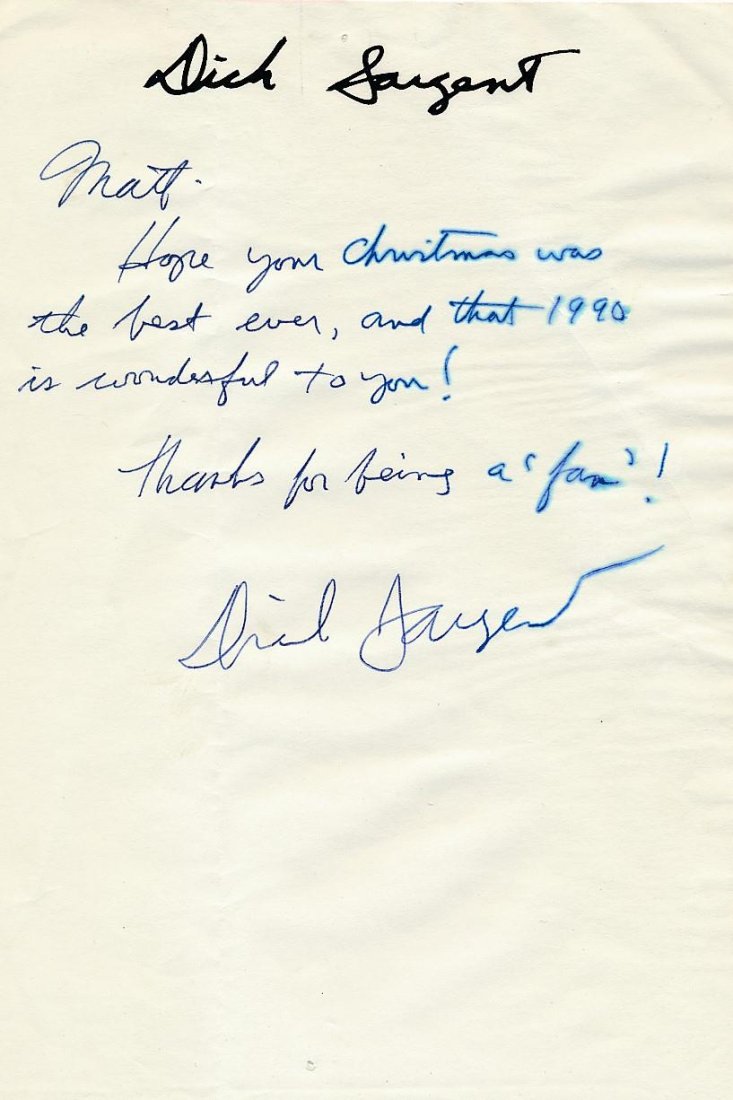 Dick Sargent
Matt.
Hope your Christmas was
the best ever, and that 1990
is wonderful to you!
Thanks for being a 'fan'!
Dick Sargent